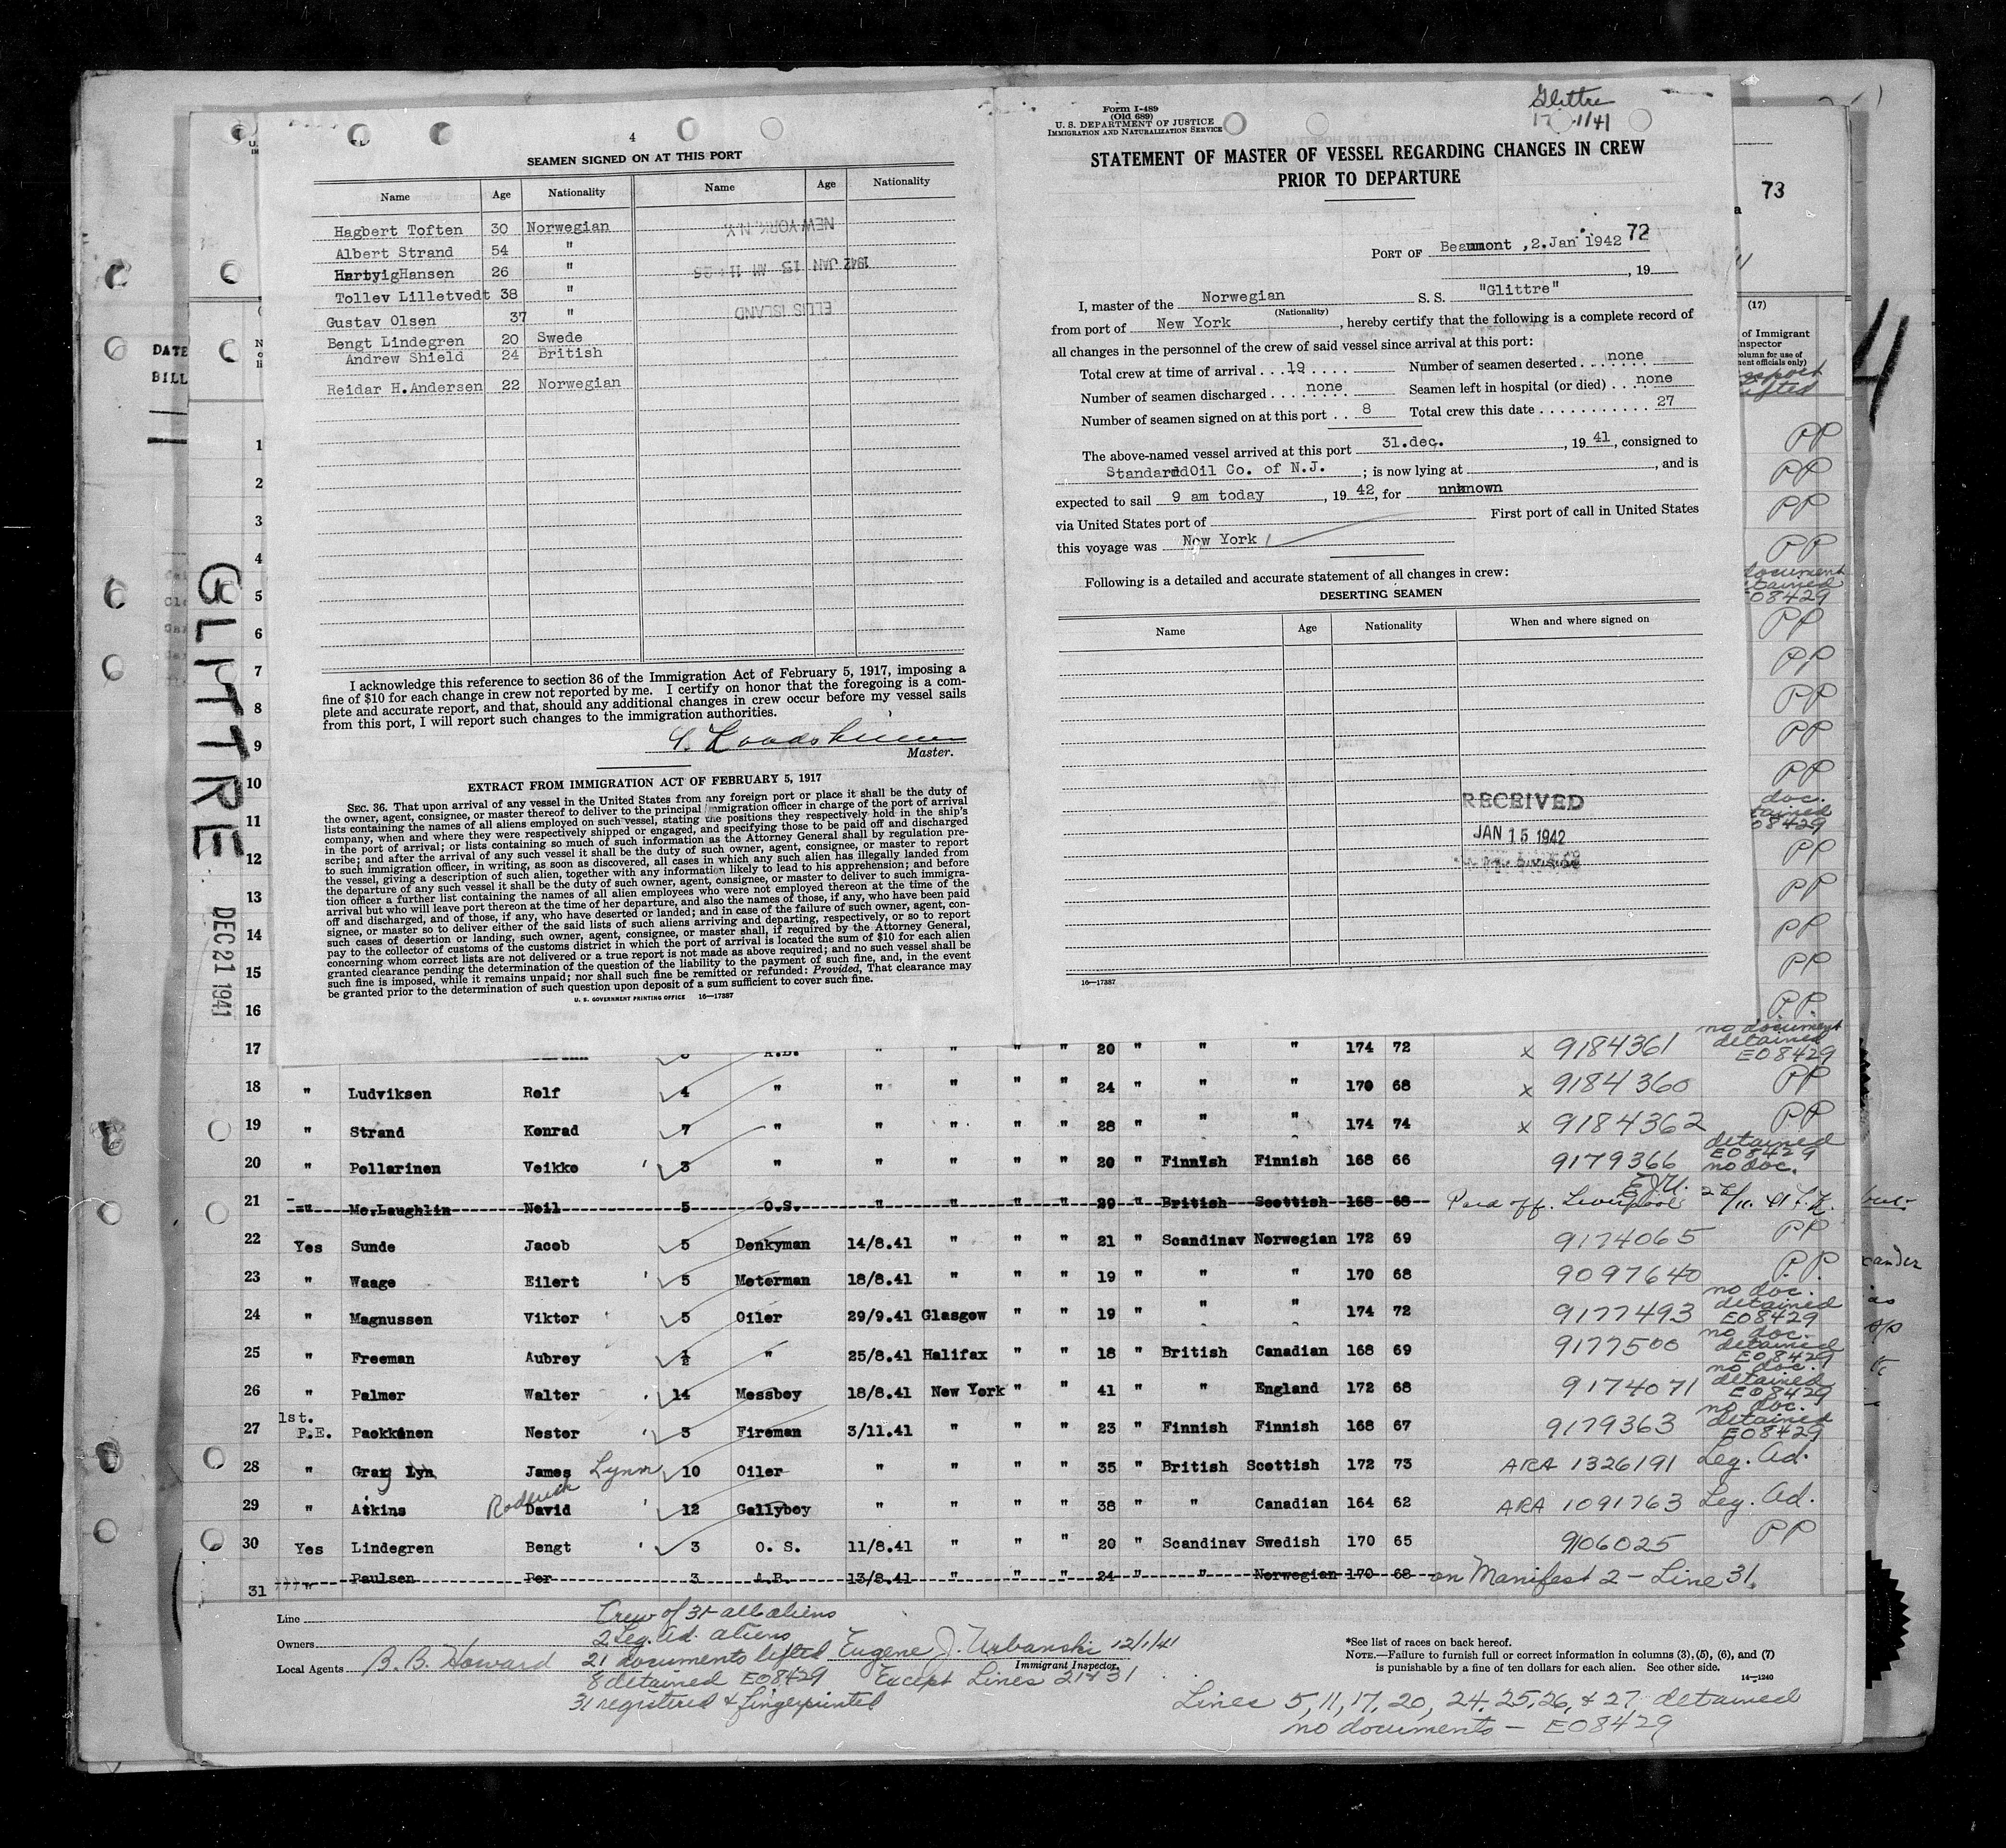 4
SEAMEN SIGNED ON AT THIS PORT
Name Age Nationality Name Age Nationality
Hagbert Toften 30 Norwegian
Albert Strand 54 "
Hansen 26 "
Tollev Lilletvedt 38 "
Gustav Olsen 37 "
Bengt Lindegren 20 Swede
Andrew Shield 24 British
Reidar H.Andersen 22 Norwegian
NEW YORK N.Y.
1942 JAN 15 AM 11:26
ELLIS ISLAND
I acknowledge this reference to section 36 of the Immigration Act of February 5, 1917, imposing a
fine of $10 for each change in crew not reported by me. I certify on honor that the foregoing is a com-
plete and accurate report, and that, should any additional changes in crew occur before my vessel sails
from this port, I will report such changes to the immigration authorities.
Master.
EXTRACT FROM IMMIGRATION ACT OF FEBRUARY 5, 1917
SEC. 36. That upon arrival of any vessel in the United States from any foreign port or place it shall be the duty of
the owner, agent, consignee, or master thereof to deliver to the principal immigration officer in charge of the port of arrival
lists containing the names of all aliens employed on such vessel, stating the positions they respectively hold in the ship's
company, when and where they were respectively shipped or engaged, and specifying those to be paid off and discharged
in the port of arrival; or lists containing so much of such information as the Attorney General shall by regulation pre-
scribe; and after the arrival of any such vessel it shall be the duty of such owner, agent, consignee, or master to report
to such immigration officer, in writing, as soon as discovered, all cases in which any such alien has illegally landed from
the vessel, giving a description of such alien, together with any information likely to lead to his apprehension; and before
the departure of any such vessel it shall be the duty of such owner, agent, consignee, or master to deliver to such immigra-
tion officer a further list containing the names of all alien employees who were not employed thereon at the time of the
arrival but who will leave port thereon at the time of her departure, and also the names of those, if any, who have been paid
off and discharged, and of those, if any, who have deserted or landed; and in case of the failure of such owner, agent, con-
signee, or master so to deliver either of the said lists of such aliens arriving and departing, respectively, or so to report
such cases of desertion or landing, such owner, agent, consignee, or master shall, if required by the Attorney General,
pay to the collector of customs of the customs district in which the port of arrival is located the sum of $10 for each alien
concerning whom correct lists are not delivered or a true report is not made as above required; and no such vessel shall be
granted clearance pending the determination of the question of the liability to the payment of such fine, and, in the event
such fine is imposed, while it remains unpaid; nor shall such fine be remitted or refunded: Provided, That clearance may
be granted prior to the determination of such question upon deposit of a sum sufficient to cover such fine.
U. S. GOVERNMENT PRINTING OFFICE 16—17387
Form I-489
(Old 689)
U. S. DEPARTMENT OF JUSTICE
IMMIGRATION AND NATURALIZATION SERVICE
Glittre
STATEMENT OF MASTER OF VESSEL REGARDING CHANGES IN CREW
PRIOR TO DEPARTURE
72
PORT OF Beaumont ,2.Jan 1942
, 19
I, master of the Norwegian S. S. "Glittre"
(Nationality)
from port of New York , hereby certify that the following is a complete record of
all changes in the personnel of the crew of said vessel since arrival at this port:
Total crew at time of arrival 19 Number of seamen deserted none
Number of seamen discharged none Seamen left in hospital (or died) none
Number of seamen signed on at this port 8 Total crew this date 27
The above-named vessel arrived at this port 31.dec. , 19 41, consigned to
Standard Oil Co. of N.J. ; is now lying at , and is
expected to sail 9 am today , 19 42, for unknown
via United States port of First port of call in United States
this voyage was New York
Following is a detailed and accurate statement of all changes in crew:
DESERTING SEAMEN
Name Age Nationality When and where signed on
RECEIVED
JAN 15 1942
16—17387
73
(17)
of Immigrant
Inspector
DATE
BILL
GLITTRE
DEC 21 1941
1
2
3
4
5
6
7
8
9
10
11
12
13
14
15
16
PP
PP
PP
PP
document
08429
PP
PP
PP
PP
PP
doc.
08429
PP
PP
PP
PP
P.P.
17 A.B. " " " " 20 " " " 174 72 x 9184361 no document detained E08429
18 " Ludviksen Rolf 4 " " " " " 24 " " " 170 68 x 9184360 PP
19 " Strand Konrad 7 " " " " " 28 " " " 174 74 x 9184362 PP
20 " Pollarinen Veikko 3 " " " " " 20 " Finnish Finnish 168 66 9179366 detained E08429 no doc.
21 " Mc.Laughlin Neil 5 O.S. " " " " 29 " British Scottish 168 68 Paid off. Liverpool
22 Yes Sunde Jacob 5 Donkyman 14/8.41 " " " 21 " Scandinav Norwegian 172 69 9174065 PP
23 " Waage Eilert 5 Motorman 18/8.41 " " " 19 " " " 170 68 9097640 P.P.
24 " Magnussen Viktor 5 Oiler 29/9.41 Glasgow " " 19 " " " 174 72 9177493 no doc. detained E08429
25 " Freeman Aubrey " 25/8.41 Halifax " " 18 " British Canadian 168 69 9177500 no doc. detained E08429
26 " Palmer Walter 14 Messboy 18/8.41 New York " " 41 " " England 172 68 9174071 no doc. detained E08429
27 1st. P.E. Paekkonen Nestor 3 Fireman 3/11.41 " " " 23 " Finnish Finnish 168 67 9179363 no doc. detained E08429
28 " Gray Lyn James Lynn 10 Oiler " " " " 35 " British Scottish 172 73 ARA 1326191 Leg. Ad.
29 " Atkins Roderick David 12 Gallyboy " " " " 38 " " Canadian 164 62 ARA 1091763 Leg. Ad.
30 Yes Lindegren Bengt 3 O. S. 11/8.41 " " " 20 " Scandinav Swedish 170 65 9106025 PP
31 " Paulsen Per 3 A.B. 13/8.41 " " " 24 " " Norwegian 170 68 on Manifest 2 - Line 31.
Line
Owners
Local Agents B. B. Howard
Crew of 31 all aliens
2 Leg. Ad. aliens
21 documents lifted
8 detained E08429
31 registered & fingerprinted
Eugene J. Urbanski 12/1/41
Immigrant Inspector.
Except Lines 21 & 31
*See list of races on back hereof.
NOTE.—Failure to furnish full or correct information in columns (3), (5), (6), and (7)
is punishable by a fine of ten dollars for each alien. See other side.
14—1240
Lines 5, 11, 17, 20, 24, 25, 26, & 27 detained
no documents - E08429